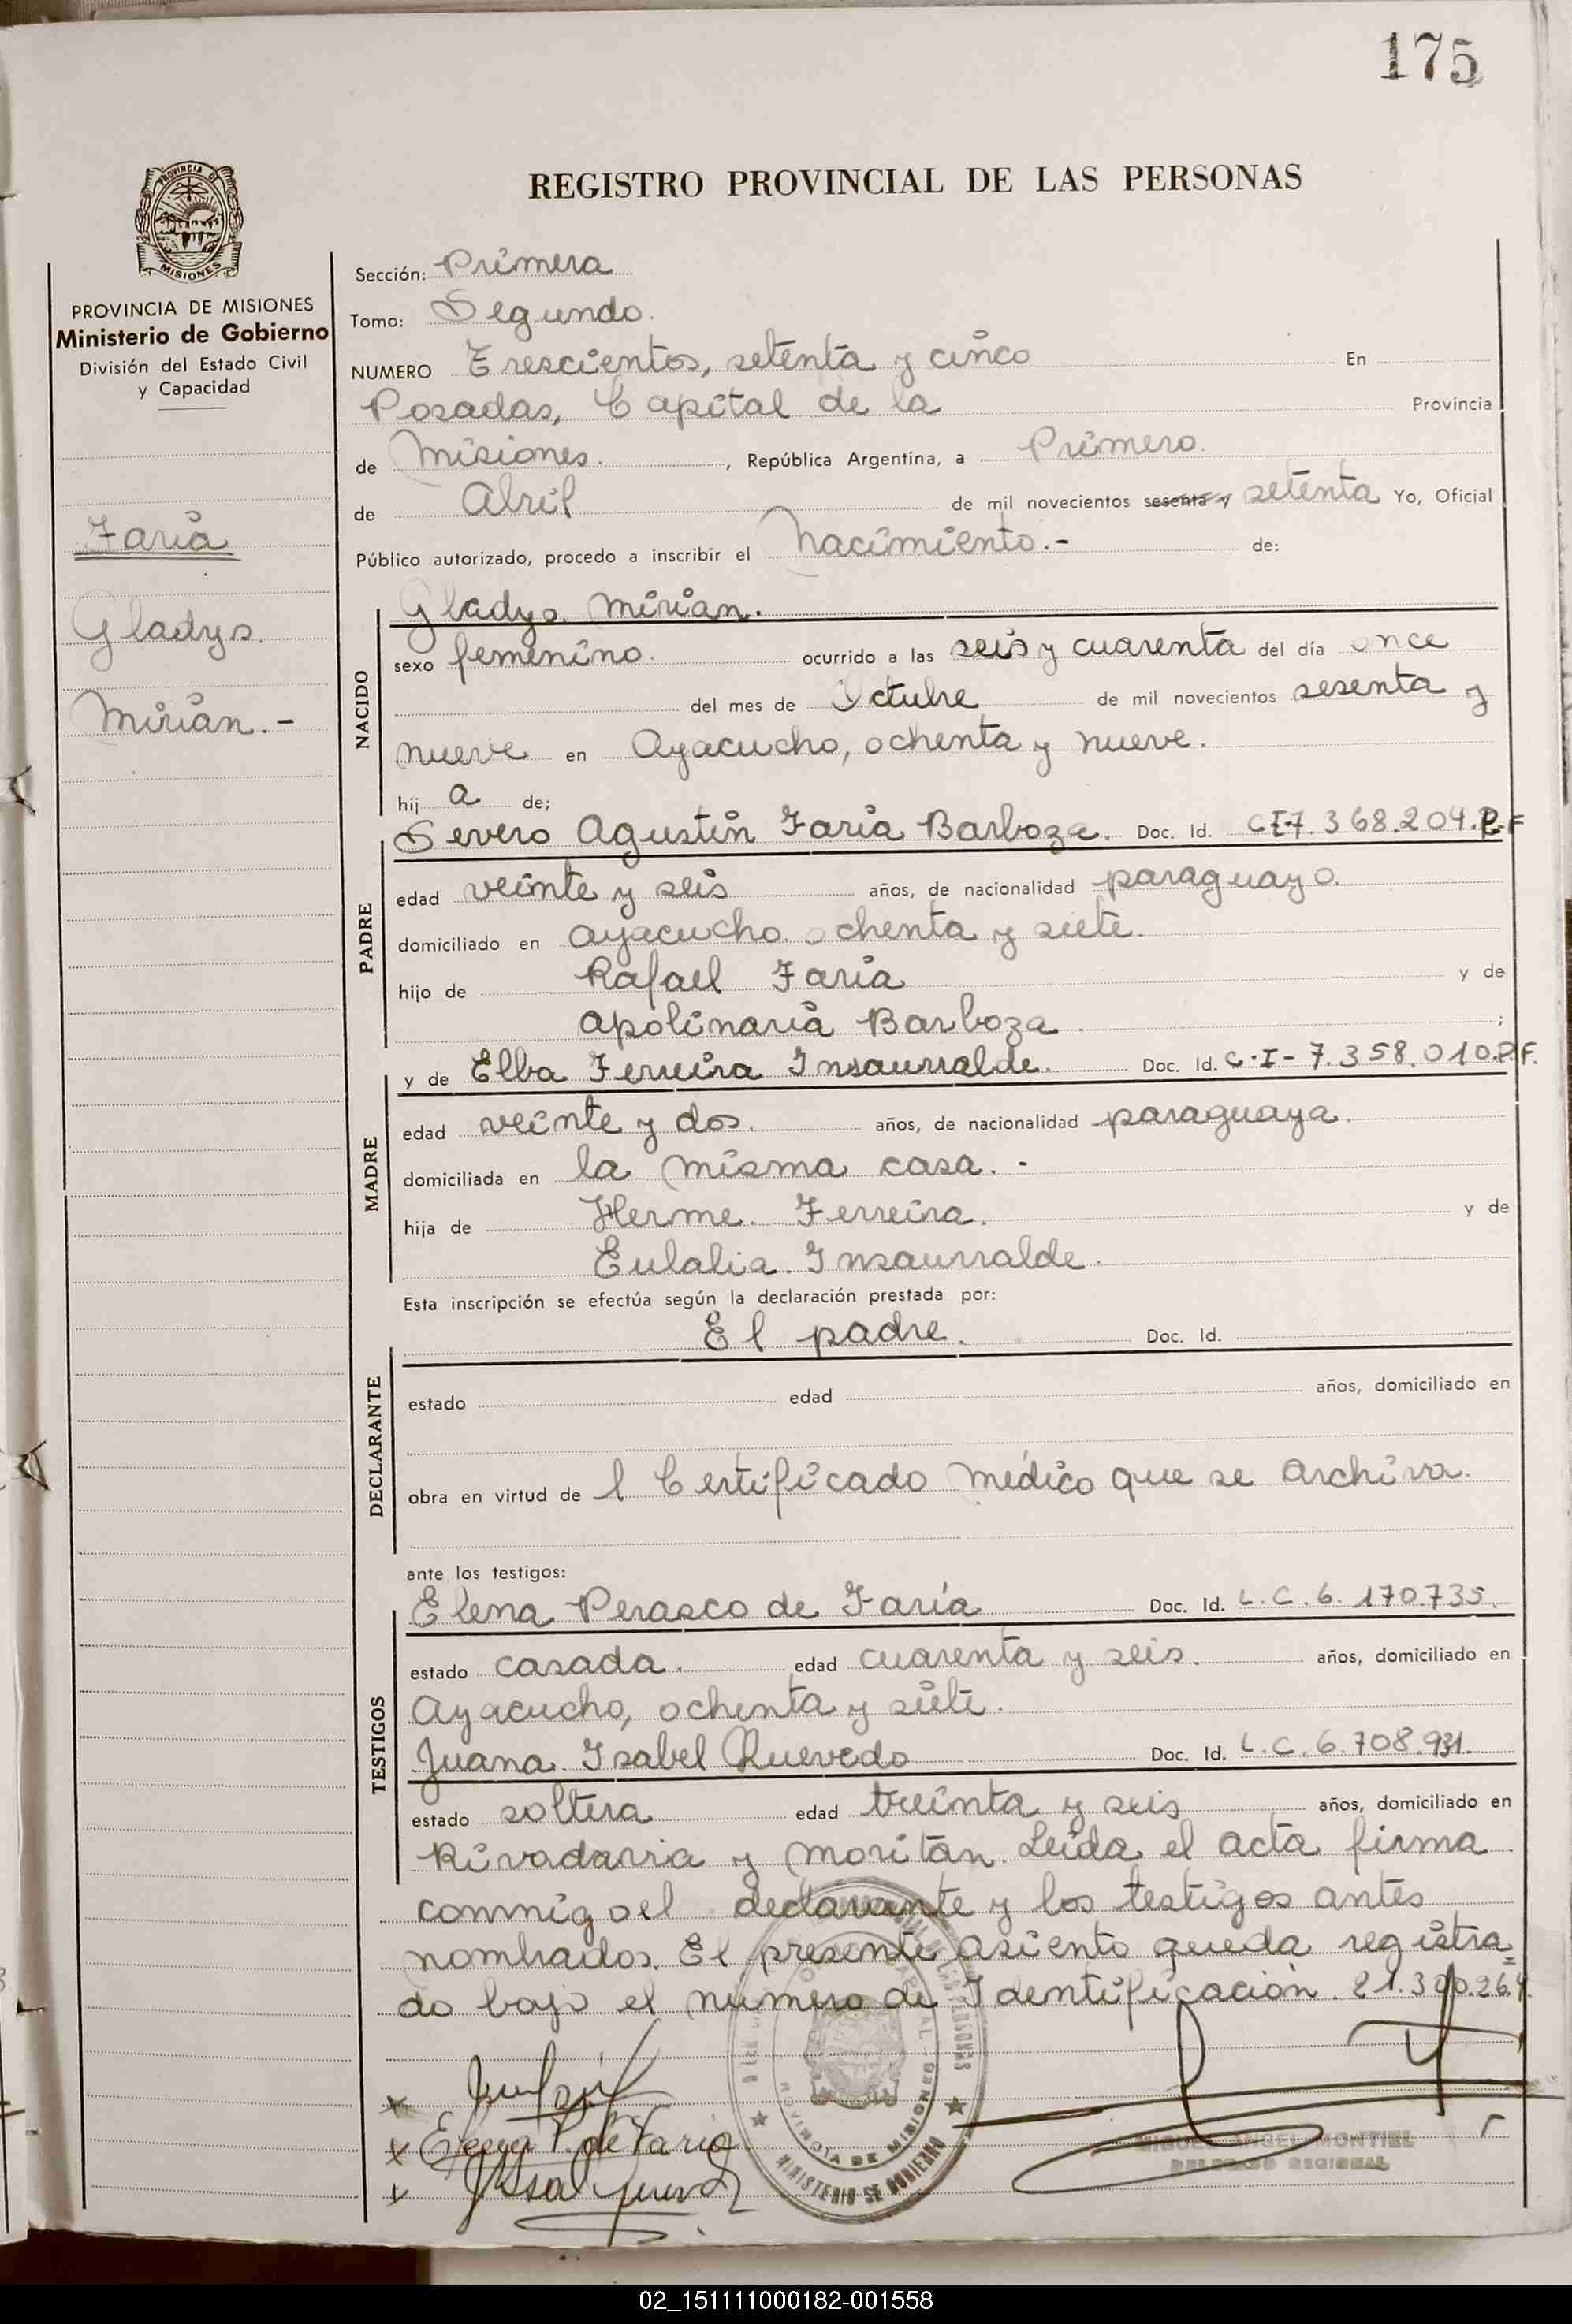 175
PROVINCIA DE
MISIONES
PROVINCIA DE MISIONES
Ministerio de Gobierno
División del Estado Civil
y Capacidad
Faria
Gladys
Mirian.-
REGISTRO PROVINCIAL DE LAS PERSONAS
Sección: Primera
Tomo: Segundo.
NUMERO Trescientos, setenta y cinco En
Posadas, Capital de la Provincia
de Misiones. , República Argentina, a Primero.
de Abril de mil novecientos sesenta y setenta Yo, Oficial
Público autorizado, procedo a inscribir el Nacimiento.- de:
NACIDO
Gladys Mirian.
sexo femenino. ocurrido a las seis y cuarenta del día once
del mes de Octubre de mil novecientos sesenta y
nueve en Ayacucho, ochenta y nueve.
hij a de;
PADRE
Severo Agustin Faria Barboza. Doc. Id. CI7.368.204.P.F
edad veinte y seis años, de nacionalidad paraguayo.
domiciliado en Ayacucho ochenta y siete.
hijo de Rafael Faria y de
Apolinaria Barboza ;
MADRE
y de Elba Ferreira Insaurralde. Doc. Id. C.I-7.358.010.P.F.
edad veinte y dos. años, de nacionalidad paraguaya.
domiciliada en la misma casa.-
hija de Herme. Ferreira. y de
Eulalia Insaurralde.
Esta inscripción se efectúa según la declaración prestada por:
DECLARANTE
El padre. Doc. Id.
estado edad años, domiciliado en
obra en virtud de l Certificado médico que se Archiva.
ante los testigos:
TESTIGOS
Elena Perasco de Faría Doc. Id. L.C.6.170.735.
estado casada. edad cuarenta y seis. años, domiciliado en
Ayacucho, ochenta y siete.
Juana Isabel Quevedo Doc. Id. L.C.6.708.931.
estado soltera edad treinta y seis años, domiciliado en
Rivadavia y Moritán. Leida el acta firma
conmigo el declarante y los testigos antes
nombrados. El presente asiento queda registra=
do bajo el número de Identificación. 21.300.264.
Elena P. de Faria
PROVINCIA DE MISIONES
MINISTERIO DE GOBIERNO
MIGUEL ANGEL MONTIEL
DELEGADO REGIONAL
02_151111000182-001558